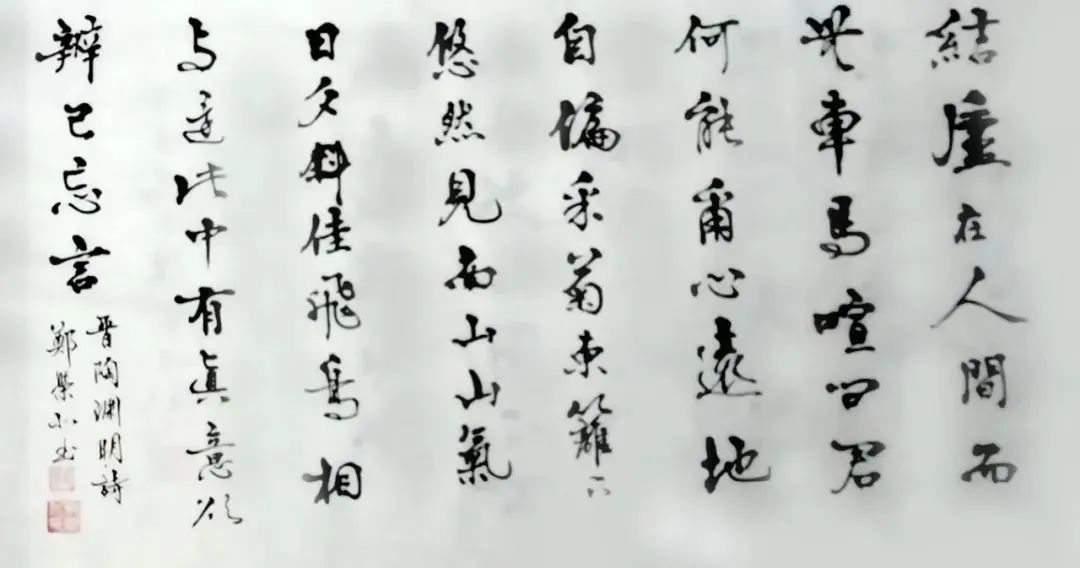 結廬在人間而
無車馬喧問君
何能爾心遠地
自偏采菊東籬下
悠然見南山山氣
日夕斜佳飛鳥相
与還此中有眞意欲
辨已忘言
晋陶淵明詩
鄭 书